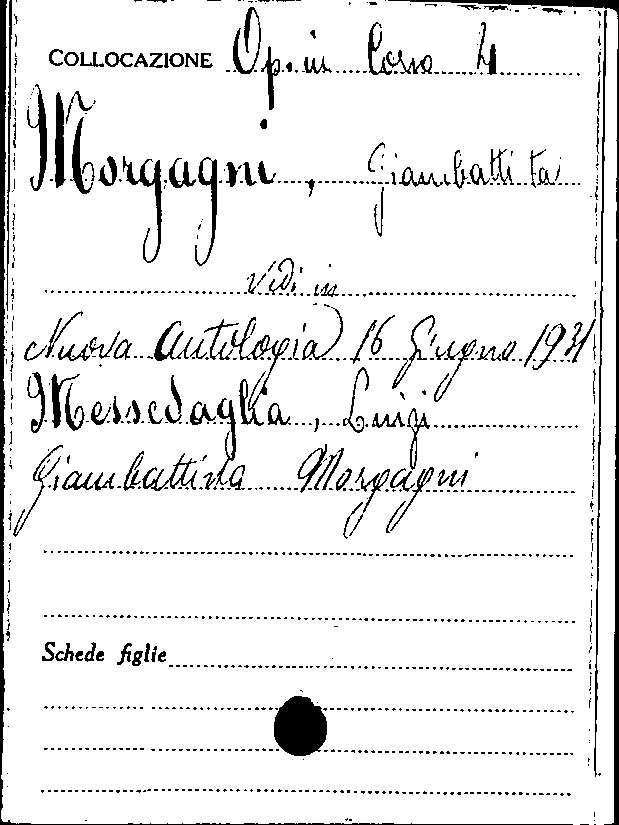 COLLOCAZIONE Op. in Corso 4
Morgagni, Giambattista
Vedi in
Nuova Antologia 16 Giugno 1931
Messedaglia, Luigi
Giambattista Morgagni
Schede figlie